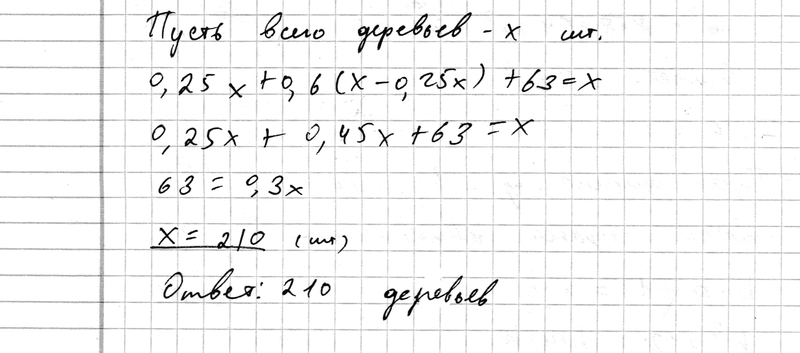 Пусть всего деревьев - x шт.
0,25x+0,6(x-0,25x)+63=x
0,25x+0,45x+63=x
63=0,3x
x=210 (шт)
Ответ: 210 деревьев